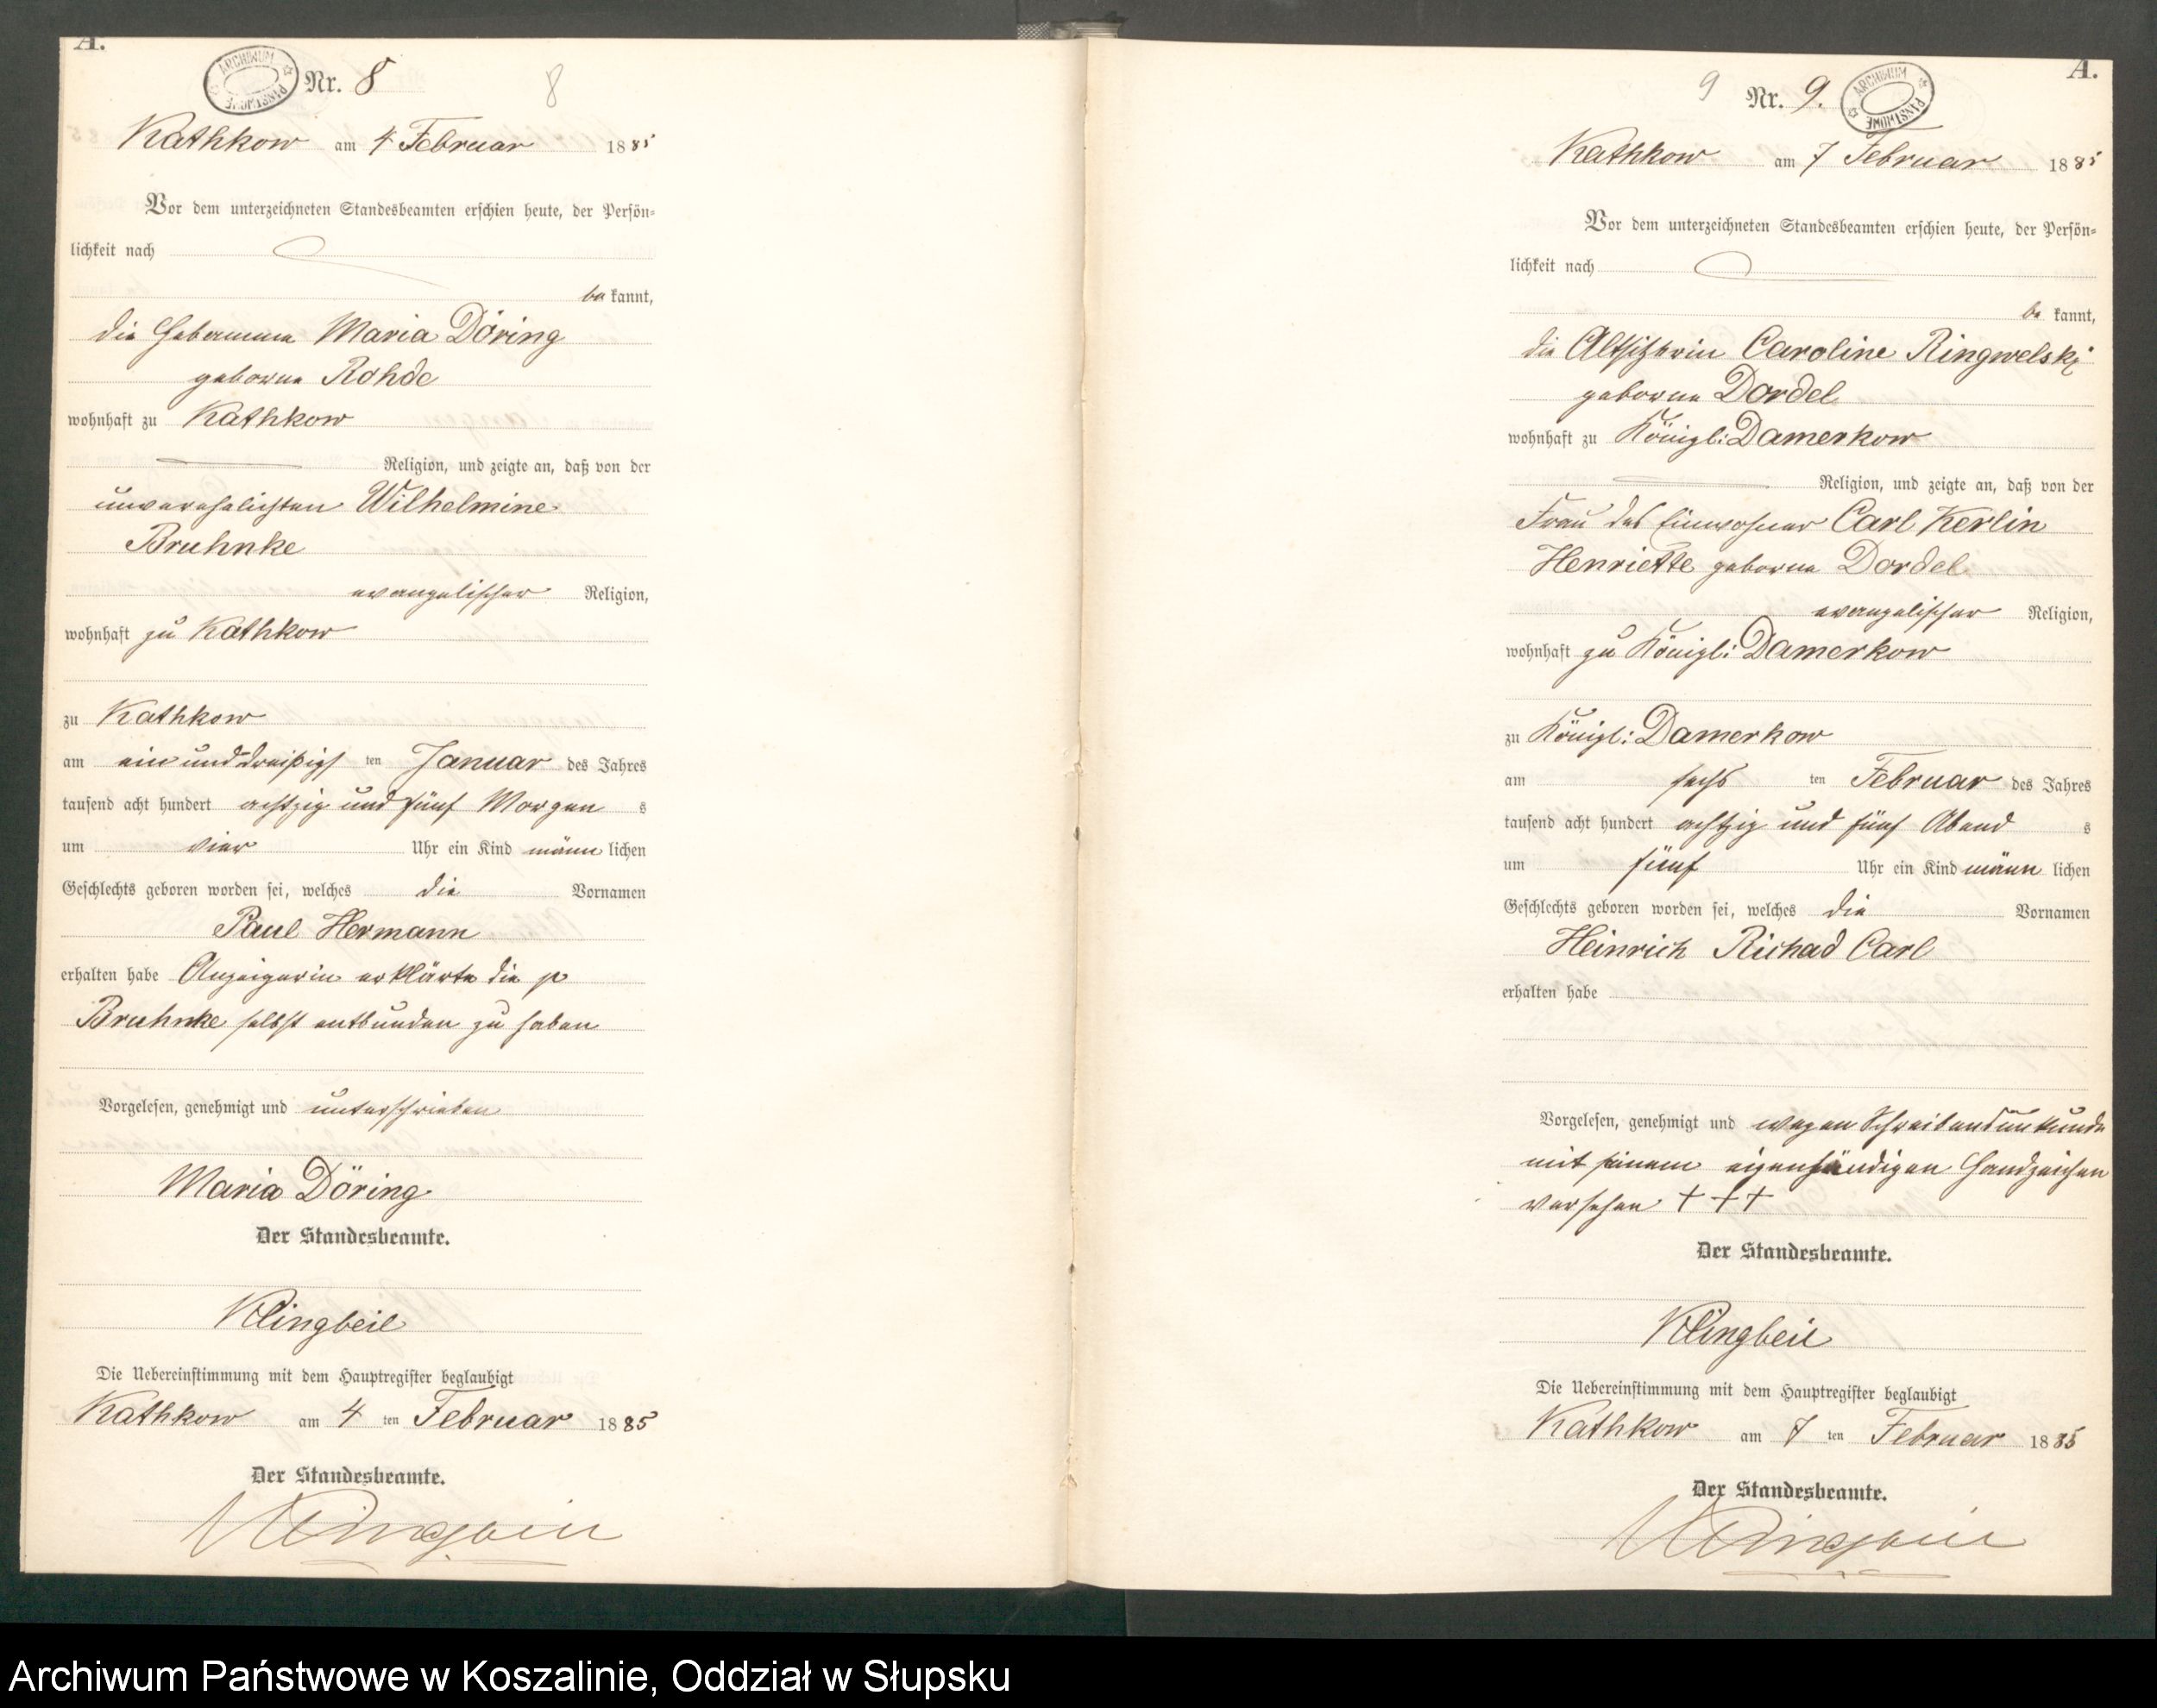 A.
ARCHIWUM PAŃSTWOWE
Nr. 8
8
Kathkow am 4 Februar 1885
Vor dem unterzeichneten Standesbeamten erschien heute, der Persön-
lichkeit nach
be kannt,
die Hebamme Maria Döring
geborne Rohde
wohnhaft zu Kathkow
Religion, und zeigte an, daß von der
unverehelichten Wilhelmine
Bruhnke
evangelischer Religion,
wohnhaft zu Kathkow
zu Kathkow
am ein und dreißigs ten Januar des Jahres
tausend acht hundert achtzig und fünf Morgen s
um vier Uhr ein Kind männ lichen
Geschlechts geboren worden sei, welches die Vornamen
Paul Hermann
erhalten habe Anzeigerin erklärte die p
Bruhnke selbst entbunden zu haben
Vorgelesen, genehmigt und unterschrieben
Maria Döring
Der Standesbeamte.
Klingbeil
Die Uebereinstimmung mit dem Hauptregister beglaubigt
Kathkow am 4 ten Februar 1885
Der Standesbeamte.
Klingbeil
A.
9
Nr. 9.
ARCHIWUM PAŃSTWOWE
Kathkow am 7 Februar 1885
Vor dem unterzeichneten Standesbeamten erschien heute, der Persön-
lichkeit nach
be kannt,
die Altsitzerin Caroline Ringwelski
geborne Dordel
wohnhaft zu Königl: Damerkow
Religion, und zeigte an, daß von der
Frau des Einwohner Carl Kerlin
Henriette geborne Dordel
evangelischer Religion,
wohnhaft zu Königl: Damerkow
zu Königl: Damerkow
am sechs ten Februar des Jahres
tausend acht hundert achtzig und fünf Abend s
um fünf Uhr ein Kind männ lichen
Geschlechts geboren worden sei, welches die Vornamen
Heinrich Richad Carl
erhalten habe
Vorgelesen, genehmigt und wegen Schreibensunkunde
mit seinem eigenhändigen Handzeichen
versehen + + +
Der Standesbeamte.
Klingbeil
Die Uebereinstimmung mit dem Hauptregister beglaubigt
Kathkow am 7 ten Februar 1885
Der Standesbeamte.
Klingbeil
Archiwum Państwowe w Koszalinie, Oddział w Słupsku